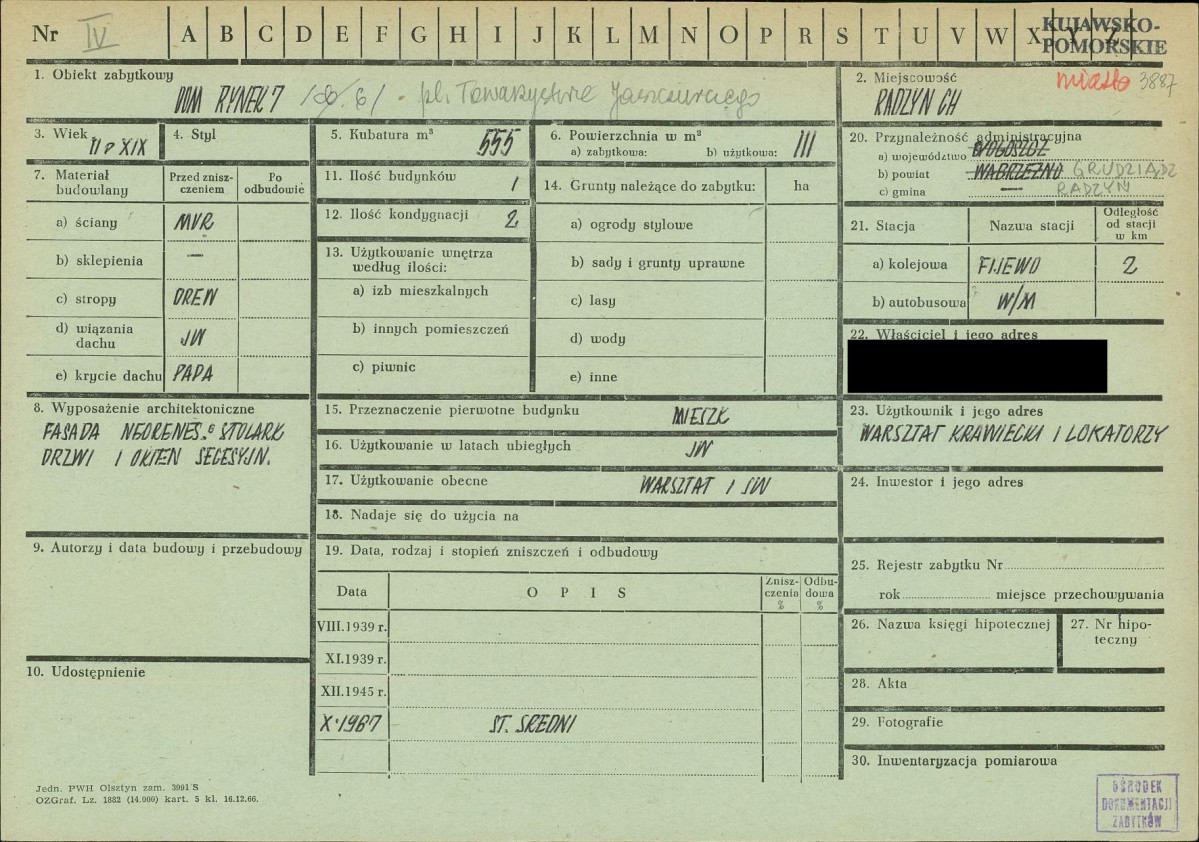 Nr IV A B C D E F G H I J K L M N O P R S T U V W X Y Z KUJAWSKO-
POMORSKIE
1. Obiekt zabytkowy
DOM RYNEK 7 /ob. 6/ - pl. Towarzystwa Jaszczurczego
2. Miejscowość miasto 3887
RADZYN CH
3. Wiek
II P XIX
4. Styl
5. Kubatura m³ 555
6. Powierzchnia w m²
a) zabytkowa: b) użytkowa: 111
7. Materiał budowlany
Przed zniszczeniem
Po odbudowie
a) ściany MUR
b) sklepienia —
c) stropy DREW
d) wiązania dachu JW
e) krycie dachu PAPA
8. Wyposażenie architektoniczne
FASADA NEORENES. STOLARK
DRZWI I OKIEN SECESYJN.
9. Autorzy i data budowy i przebudowy
10. Udostępnienie
11. Ilość budynków 1
12. Ilość kondygnacji 2
13. Użytkowanie wnętrza
według ilości:
a) izb mieszkalnych
b) innych pomieszczeń
c) piwnic
14. Grunty należące do zabytku: ha
a) ogrody stylowe
b) sady i grunty uprawne
c) lasy
d) wody
e) inne
15. Przeznaczenie pierwotne budynku MIESZK
16. Użytkowanie w latach ubiegłych JW
17. Użytkowanie obecne WARSZTAT I JW
18. Nadaje się do użycia na
19. Data, rodzaj i stopień zniszczeń i odbudowy
Data OPIS Zniszczenia % Odbudowa %
VIII.1939 r.
XI.1939 r.
XII.1945 r.
X.1967 ST. SREDNI
20. Przynależność administracyjna
a) województwo BYDGOSZCZ
b) powiat WABRZEŹNO GRUDZIĄDZ
c) gmina — RADZYŃ
21. Stacja Nazwa stacji Odległość od stacji w km
a) kolejowa FIJEWO 2
b) autobusowa W/M
22. Właściciel i jego adres
23. Użytkownik i jego adres
WARSZTAT KRAWIECKI I LOKATORZY
24. Inwestor i jego adres
25. Rejestr zabytku Nr
rok miejsce przechowywania
26. Nazwa księgi hipotecznej
27. Nr hipoteczny
28. Akta
29. Fotografie
30. Inwentaryzacja pomiarowa
Jedn. PWH Olsztyn zam. 3991 S
OZGraf. Lz. 1882 (14.000) kart. 5 kl. 16.12.66.
OŚRODEK
DOKUMENTACJI
ZABYTKÓW